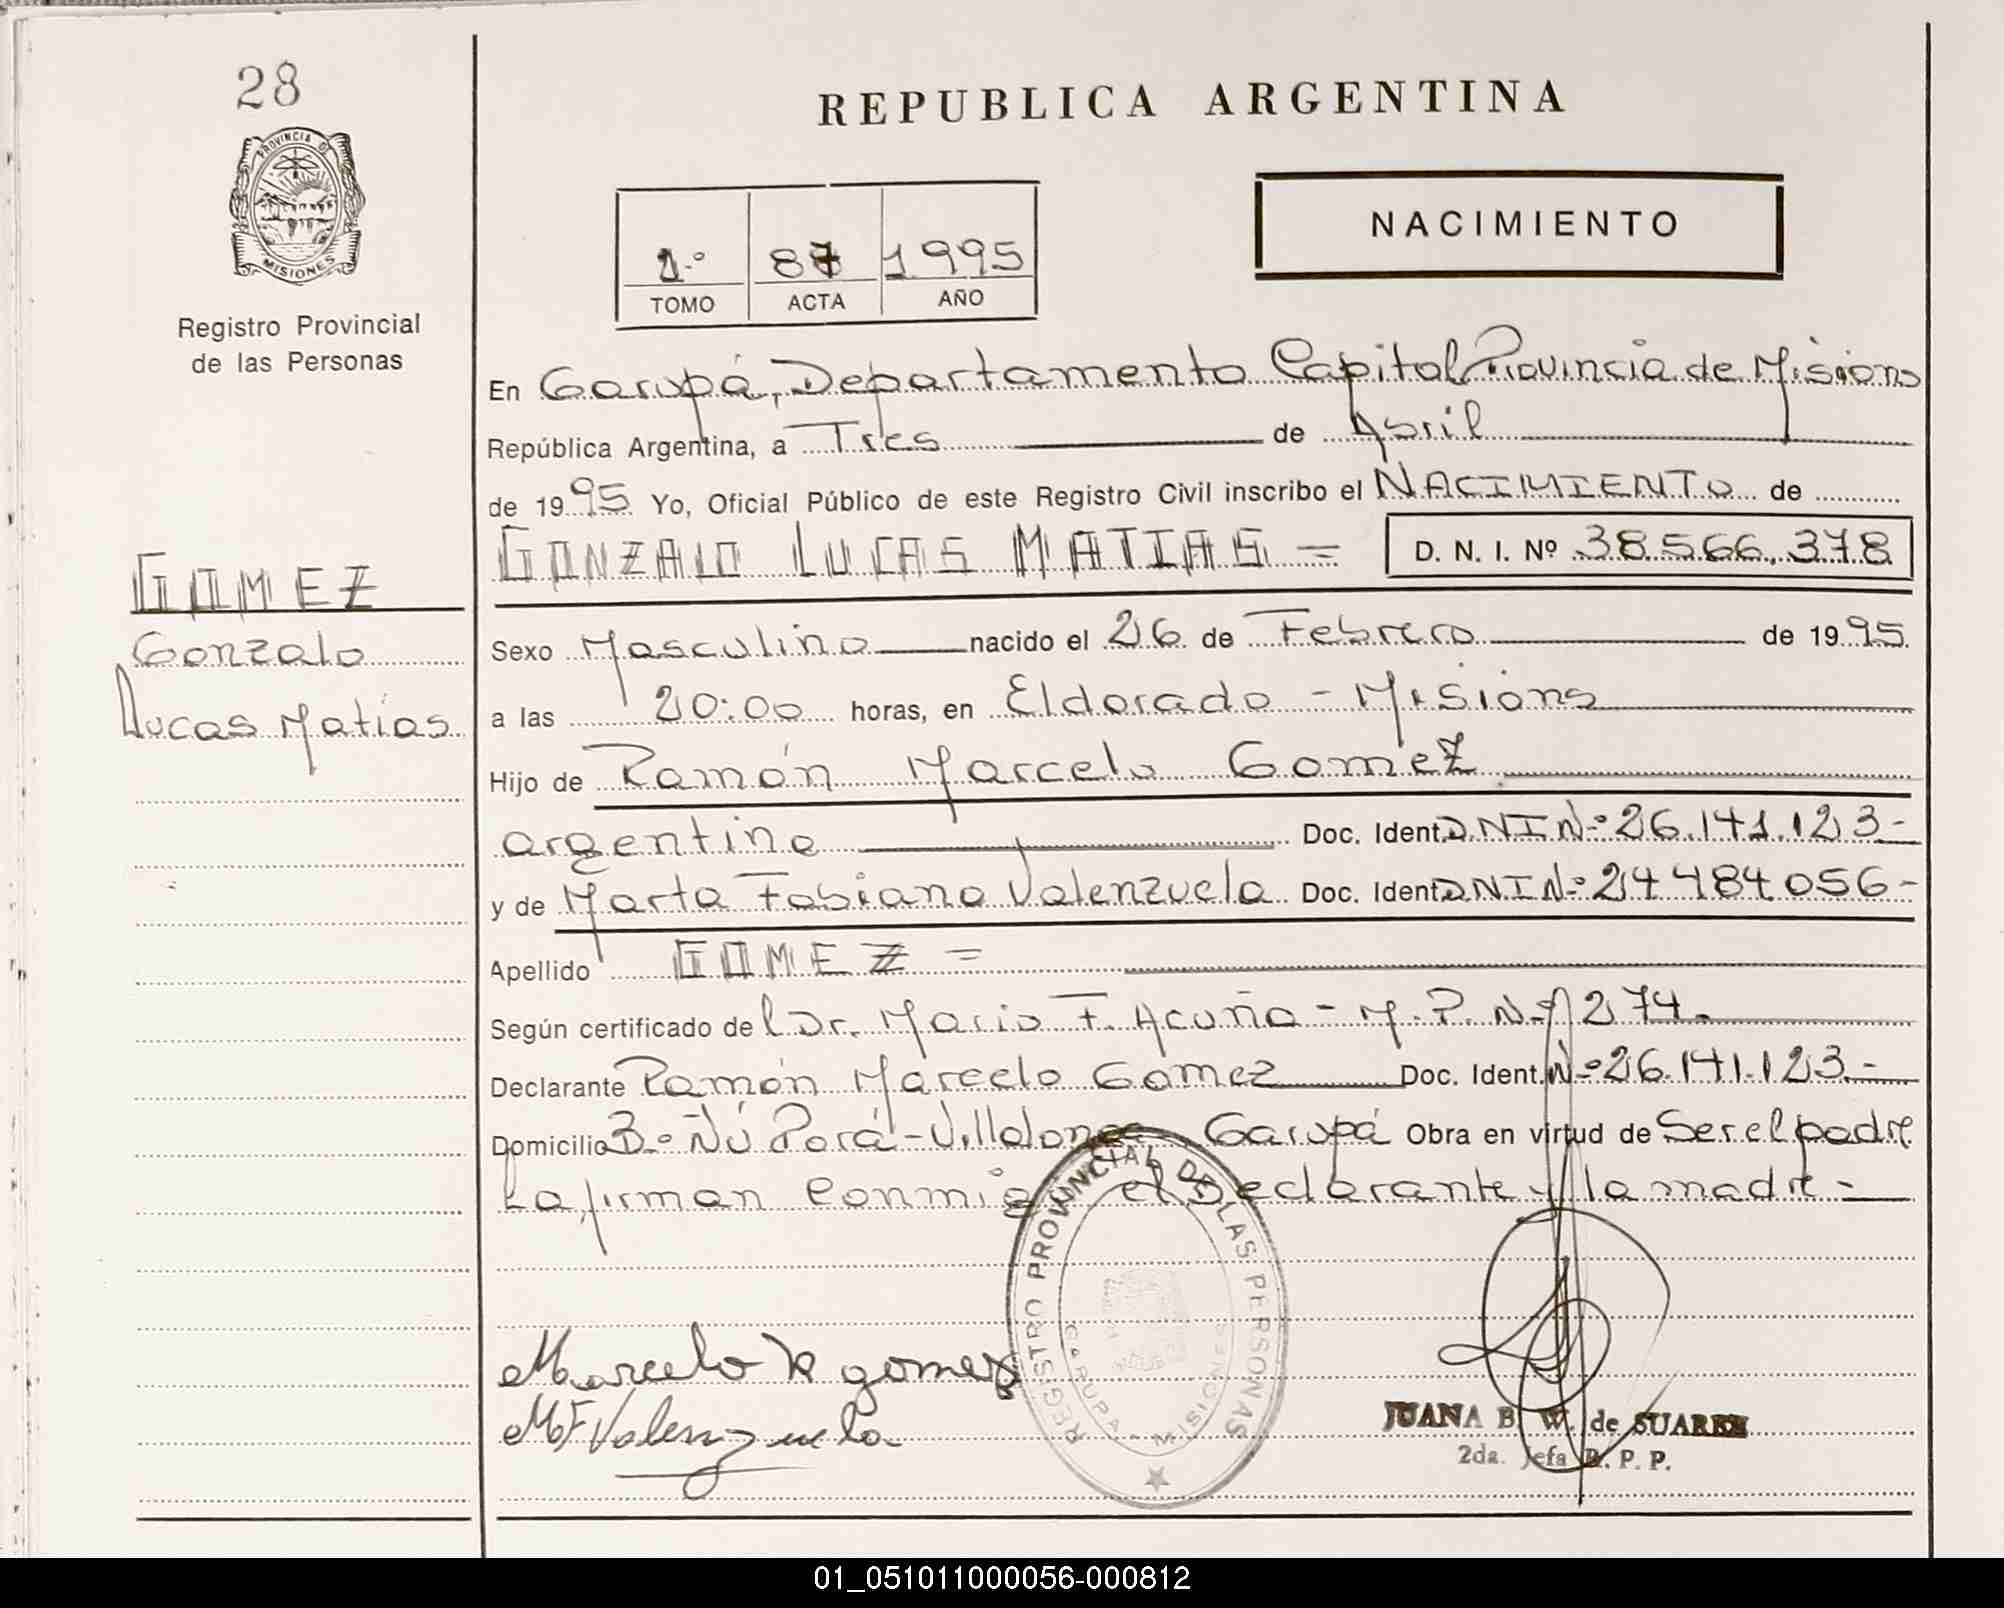 28
PROVINCIA DE
MISIONES
Registro Provincial
de las Personas
REPUBLICA ARGENTINA
NACIMIENTO
1.º 87 1995
TOMO ACTA AÑO
En Garupá, Departamento Capital Provincia de Misions
República Argentina, a Tres de Abril
de 1995 Yo, Oficial Público de este Registro Civil inscribo el NACIMIENTO de
GONZALO LUCAS MATIAS = D. N. I. Nº 38.566.378
GOMEZ
Gonzalo
Lucas Matias
Sexo Masculino nacido el 26 de Febrero de 1995.
a las 20:00 horas, en Eldorado - Misions
Hijo de Ramón Marcelo Gomez
argentino Doc. Ident. DNI Nº 26.141.123-
y de Marta Fabiana Valenzuela Doc. Ident. DNI Nº 24 484 056-
Apellido GOMEZ =
Según certificado del Dr. Mario F. Acuña - M.P. Nº 274.
Declarante Ramón Marcelo Gomez Doc. Ident. Nº 26.141.123.-
Domicilio Bº Ñú Porá - Villalonga Garupá Obra en virtud de Ser el padre
La firman conmigo el Declarante y la madre -
REGISTRO PROVINCIAL DE LAS PERSONAS
GARUPA - MISIONES
Marcelo R gomez
MF Valenzuela
JUANA B. W. de SUAREZ
2da. Jefa R. P. P.
01_051011000056-000812